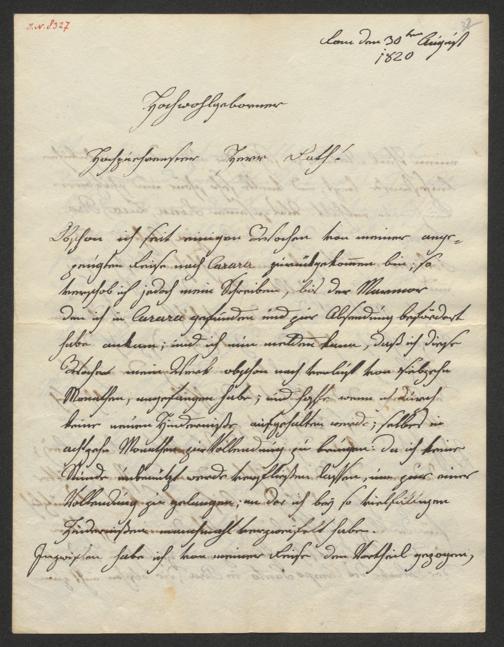 J.N. 8327
32
Rom den 30ten August
1820
Hochwohlgeborner
Hochzuehrender Herr Rath!
Obschon ich seit einigen Wochen von meiner ange-
zeigten Reise nach Carara zurückgekommen bin; so
verschob ich jedoch mein Schreiben, bis der Marmor
den ich in Carara gefunden und zur Absendung befördert
habe ankam; und ich nun melden kann, daß ich diese
Woche mein Werk obschon nach verlust von siebzehn
Monathen, angefangen habe; und hoffe wenn ich durch
keine neuen Hinderniße aufgehalten werde; selbes in
achtzehn Monathen zur Vollendung zu bringen. da ich keine
Stunde unbenützt werde verfließen lassen, um zur einer
Vollendung zu gelangen; an der ich bey so vielfältigen
Hindernißen manchmahl verzweifelt habe.
Inzwischen habe ich von meiner Reise den Vortheil gezogen,